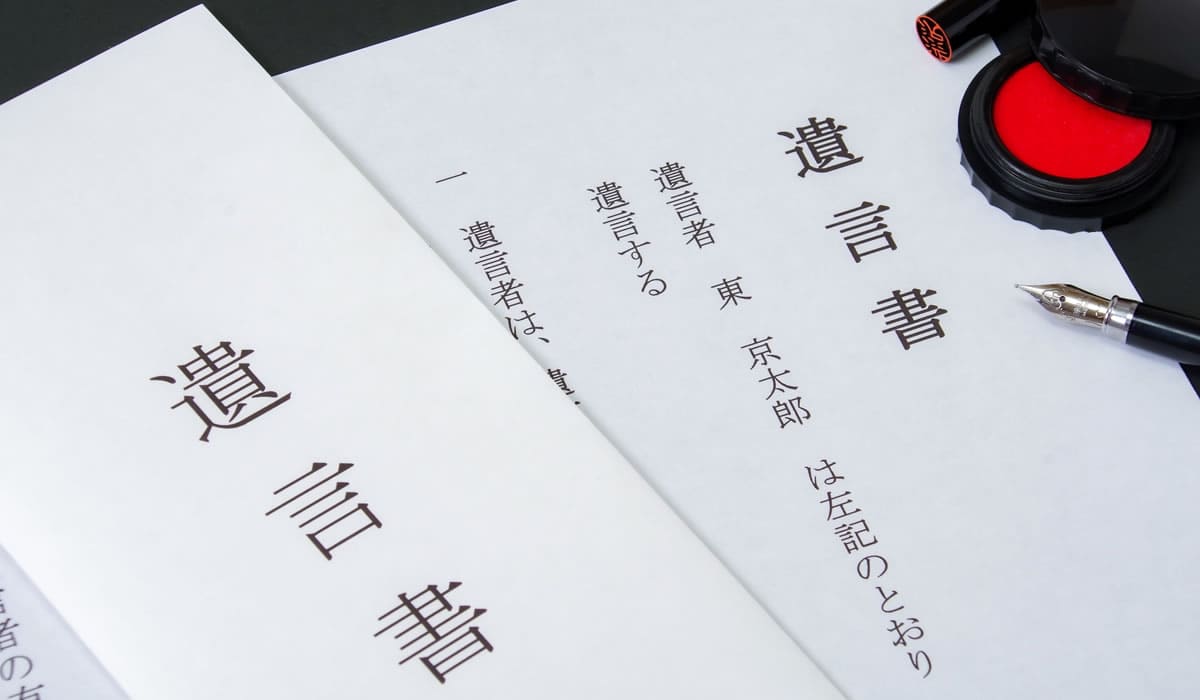 遺言書
遺言者　東　京太郎　は左記のとおり
遺言する
一　遺言者は、遺
遺言書
者の有